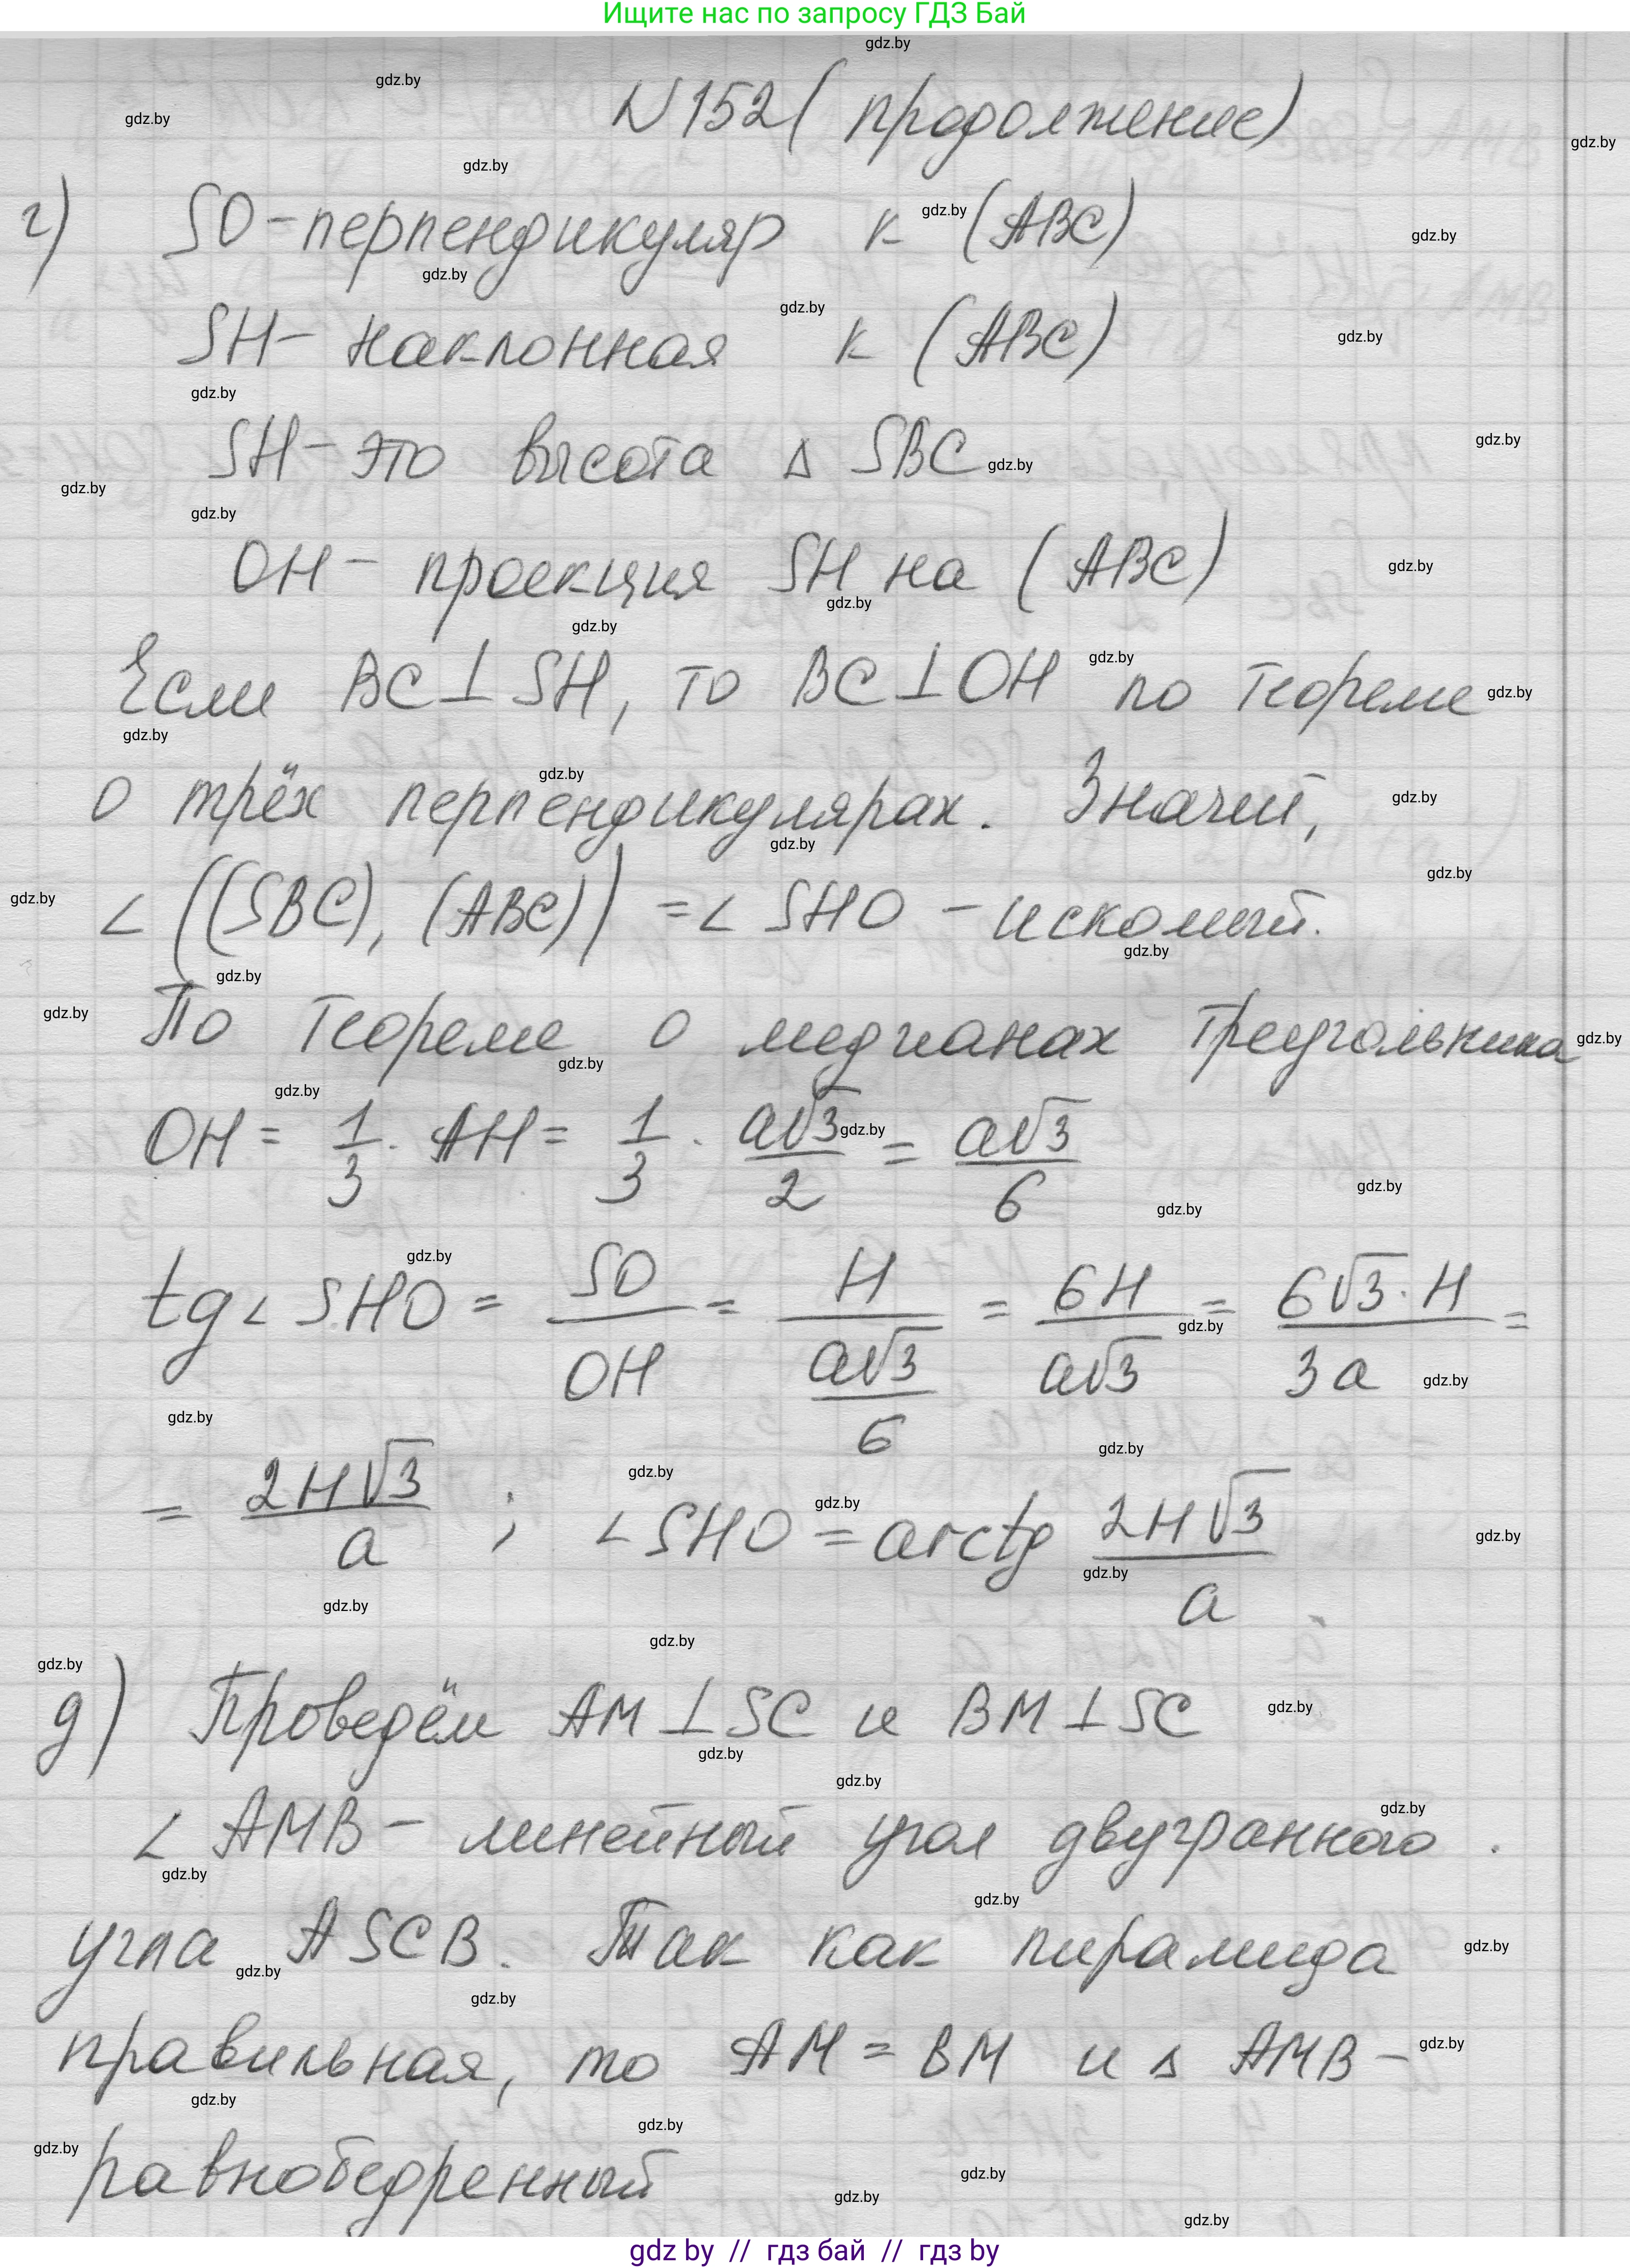 Ищите нас по запросу ГДЗ Бай
N152 (продолжение)
г) SO - перпендикуляр к (ABC)
SH - наклонная к (ABC)
SH - это высота Δ SBC
OH - проекция SH на (ABC)
Если BC ⊥ SH, то BC ⊥ OH по теореме
о трёх перпендикулярах. Значит,
∠ ((SBC), (ABC)) = ∠ SHO - искомый.
По теореме о медианах треугольника
OH = 1/3 · AH = 1/3 · a√3/2 = a√3/6
tg ∠ SHO = SO/OH = H/(a√3/6) = 6H/a√3 = 6√3·H/3a =
= 2H√3/a ; ∠ SHO = arctg 2H√3/a .
д) Проведём AM ⊥ SC и BM ⊥ SC
∠ AMB - линейный угол двугранного
угла ASCB. Так как пирамида
правильная, то AM = BM и Δ AMB -
равнобедренный
gdz by // гдз бай // gdz by